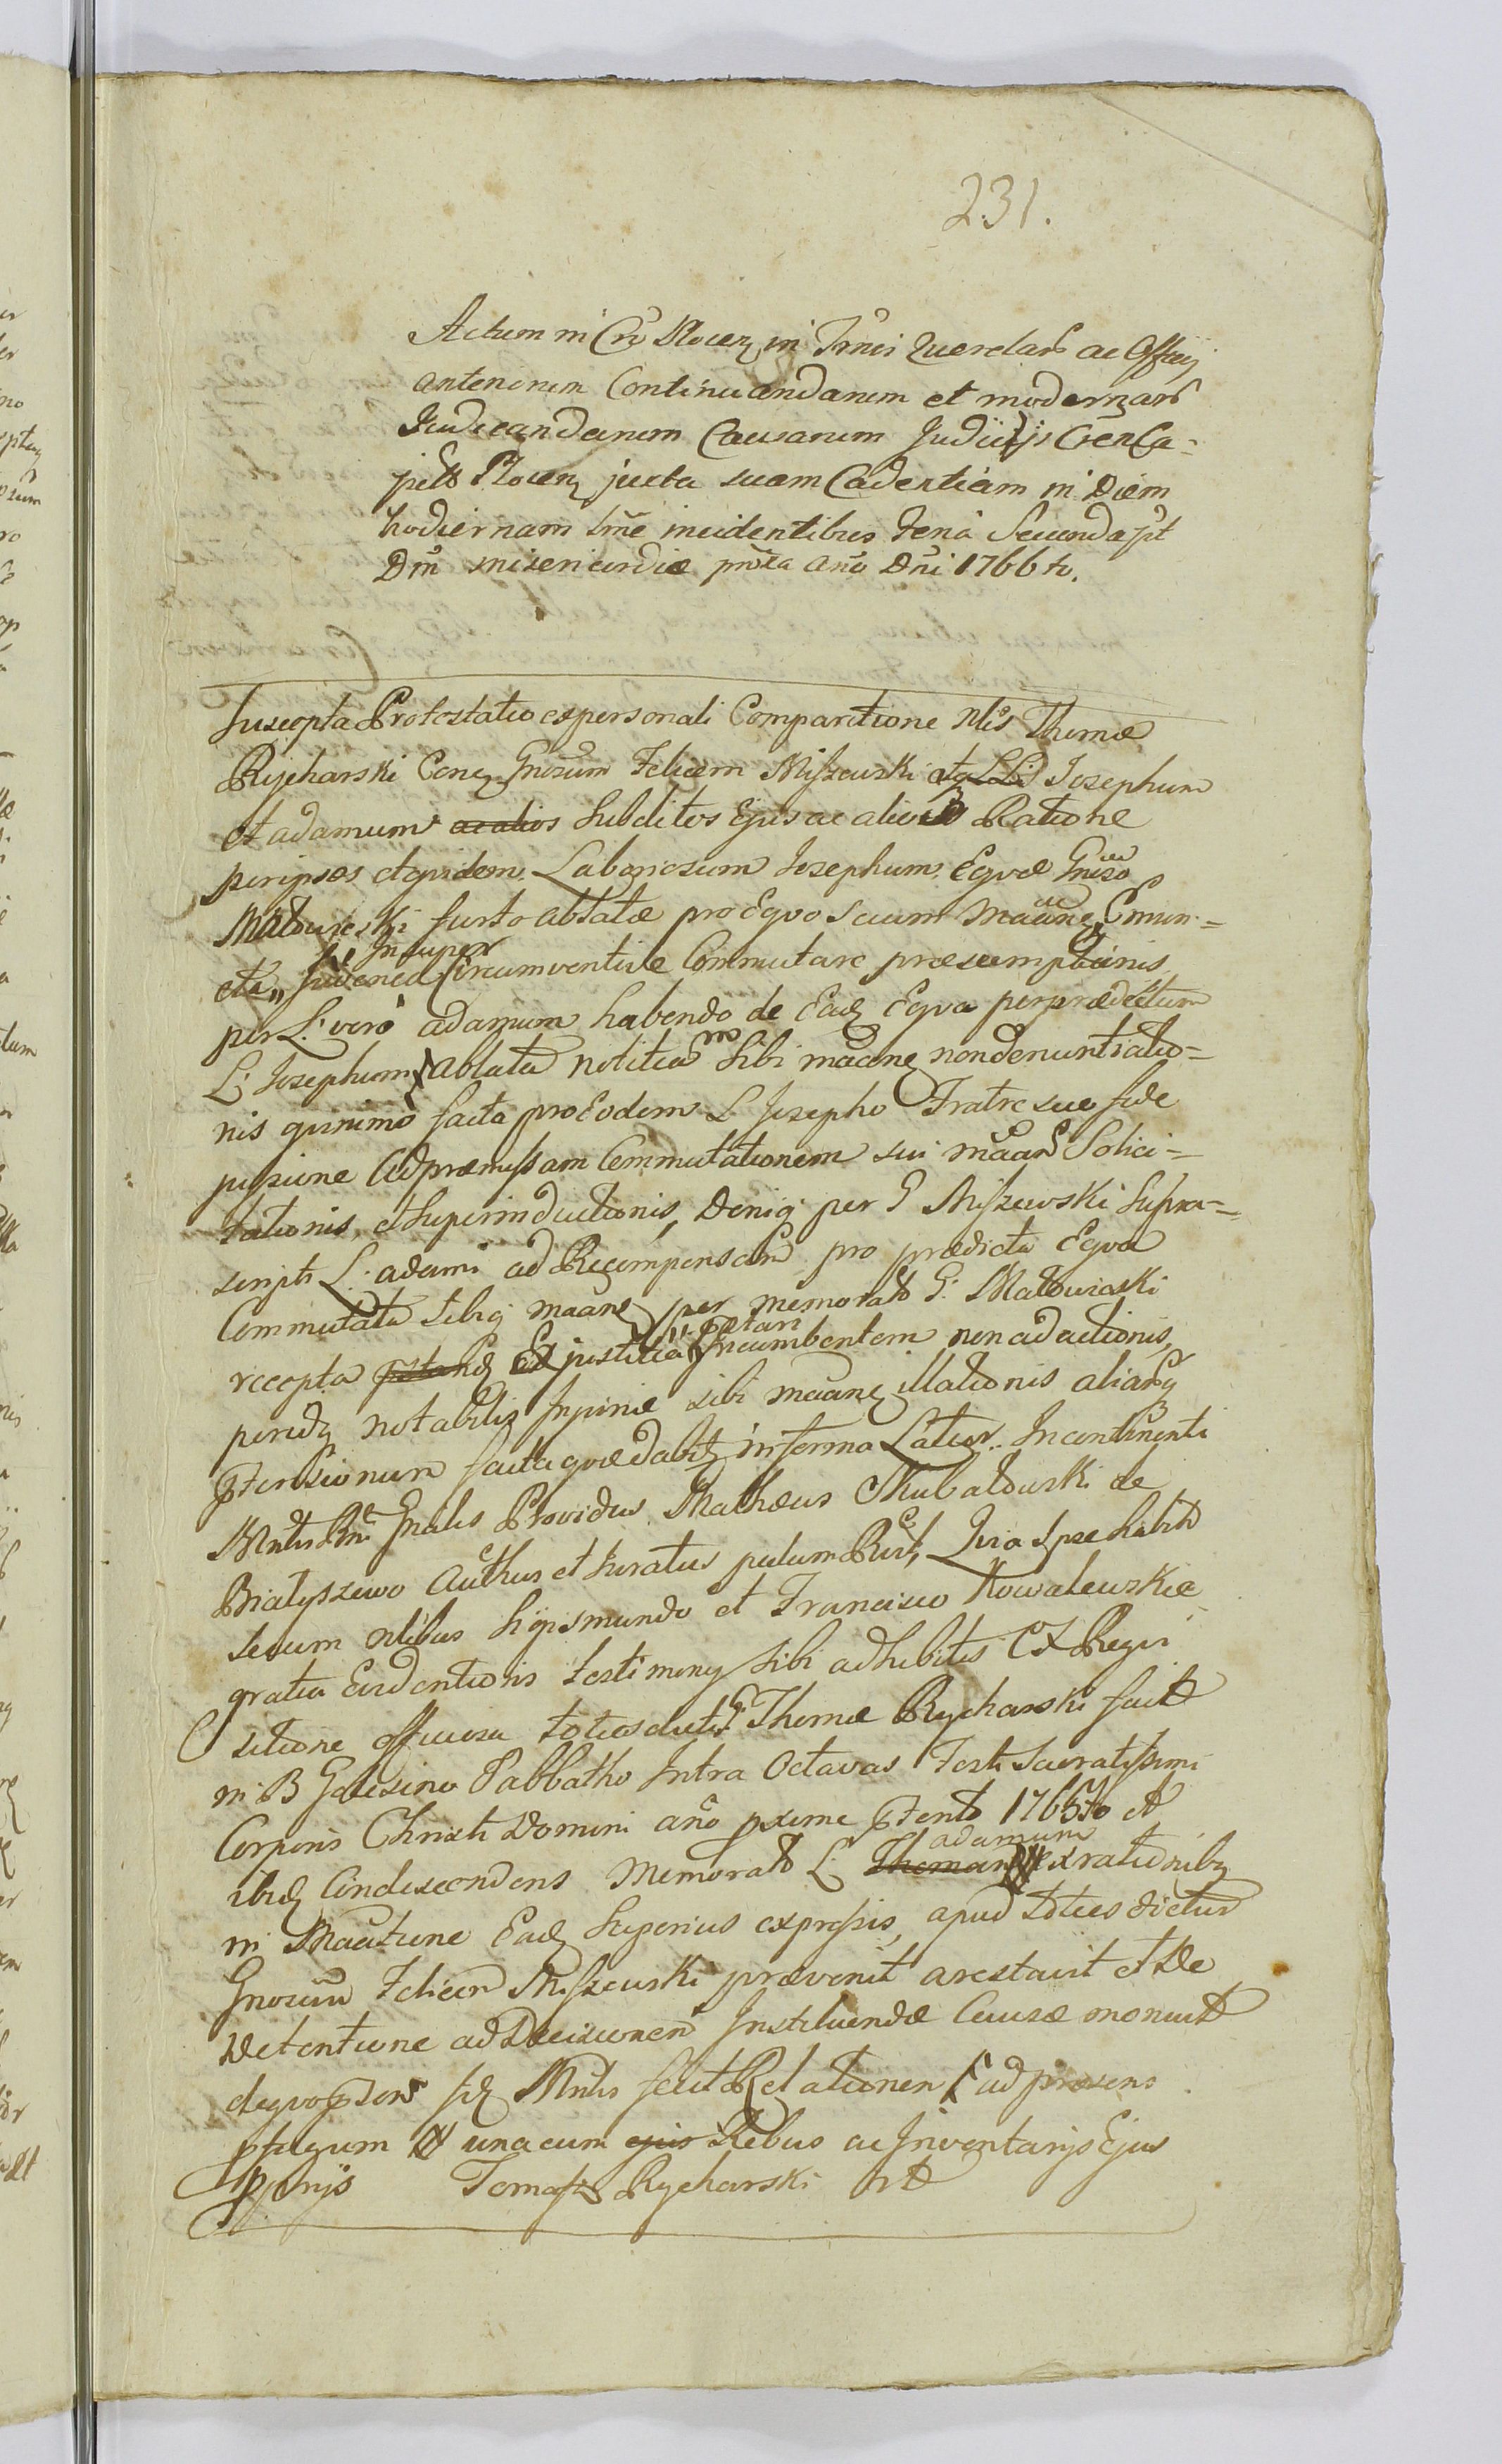 231.
Actum in Cro Plocen in Trnis Querelarum ac Officij
anteriorum Continuandarum et modernarum
Judicandarum Causarum Judicijs Cren Ca=
plbs Plocen juxta suam Cadentiam in Diem
hodiernam Lme incidentibus Feria Secunda pt
Dm misericordiæ proxa año Dñi 1766to.
Suscepta Protestatio ex personali Comparitione Nlis Thomæ
Rycharski Cong Gnosum Felicem Miszewski atq LL Josephum
et adamum ac alios Subditos Ejus ac alios Ratione
per ipsos et quidem Laboriosum Josephum Equæ Gniso
Matowieski furto ablatæ pro Equo suum Maane Emun=
cta,, Juvenca Insuper Circumventive Commutare præsumptionis
per L: vero adamum habendo de Eadq Equa per prædictum
L: Josephum ablata notitiam Sibi maane non denuntiatio=
nis quinimo facta pro Eodem L Josepho Fratre suo fide
jussione ad præmissam Commutationem sui maan Solici=
tationis, et Superinductionis, Deniq per G Miszewski Supra=
scripti L: adami ad Recompensam pro prædicta Equa
Commutata Sibiq maane per memorato G: Matowieski
recepta Ex justitia Incumbentem non adactionis,
peridq notabilis Injuriæ sibi maane illationis aliarq
ptensionum facta quæ dabitq in forma Latior. Incontinenti
Mntrlis Rni Gnalis Providus Mathæus Skubatowski de
Biatyszewo Authus et Juratus palam Rec, Quia Ipse habito
secum Nlibus Sigismundo et Francisco Kowalewskie
gratia Evidentioris testimony Sibi adhibitis Ex Regui
sitione officiosa toties dicti G Thomæ Rycharski facit
in B Golesino Sabbatho Intra Octavas Festi Sacratissimi
Corporis Christi Domini año pxime ptento 1765to et
ibidq Condescendens Memorato L Thomam adamum ex rationibq
in Maatione Eadq Superius expressis, apud toties dictum
Gnosum Felicem Miszewski prævenit arestavit et De
Detentione ad Decisionem Instituendæ Causæ monuit
de quo ptens idq Mntrlis fecit Relationem ad præsens
pfugum unacum ejus Rebus ac Inventarijs Ejus
pprijs Tomasz Rycharski mp